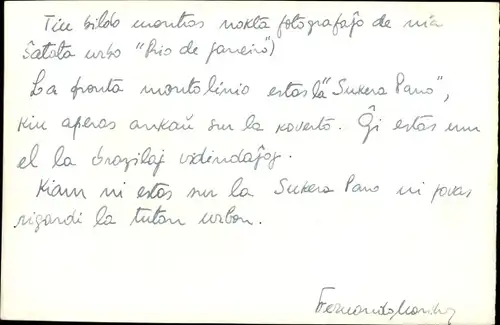 Tiu bildo montras nokta fotografaĵo de mia
ŝatata urbo "Rio de Janeiro")
La fronta montolinio estas la "Sukera Pano",
kiu aperas ankaŭ sur la koverto. Ĝi estas unu
el la brazilaj vidindaĵoj.
Kiam ni estas sur la Sukera Pano ni povas
rigardi la tutan urbon.
Fernando